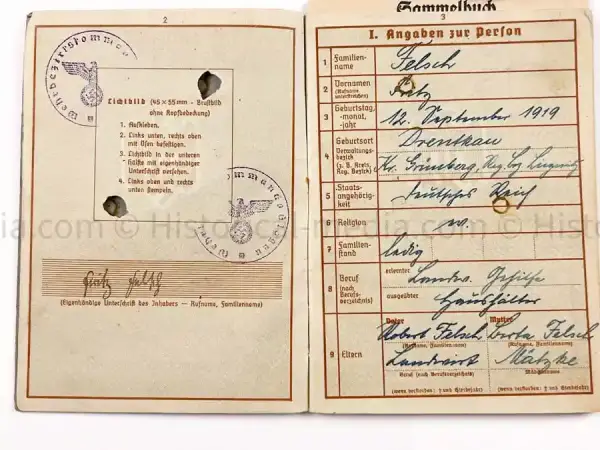 2
Wehrbezirkskomman
Lichtbild (45 × 55 mm - Brustbild
ohne Kopfbedeckung)
1. Aufkleben.
2. Links unten, rechts oben
mit Ösen befestigen.
3. Lichtbild in der unteren
Hälfte mit eigenhändiger
Unterschrift versehen.
4. Links oben und rechts
unten stempeln.
Fritz Felsch
(Eigenhändige Unterschrift des Inhabers — Rufname, Familienname)
Sammelbuch
3
I. Angaben zur Person
1 Familien-
name
Felsch
2 Vornamen
(Rufname
unterstreichen)
Fritz
3 Geburtstag,
-monat,
-jahr
12. September 1919
4 Geburtsort
Verwaltungs-
bezirk
(z. B. Kreis,
Reg. Bezirk)
Drentkau
Kr. Grünberg, Reg. Bez. Liegnitz
5 Staats-
angehörig-
keit
Deutsches Reich
6 Religion
7 Familien-
stand
ledig
8 Beruf
(nach
Berufs-
verzeichnis)
erlernter
Landw. Gehilfe
ausgeübter
Haushälter
9 Eltern
Vater
Mutter
Robert Felsch
Berta Felsch
(Rufname, Familienname)
(Rufname, Familienname)
Landwirt
Mätzke
Beruf (nach Berufsverzeichnis)
Mädchenname
(wenn verstorben: † und Sterbejahr)
(wenn verstorben: † und Sterbejahr)
media.com © Historical-media.com © Histo